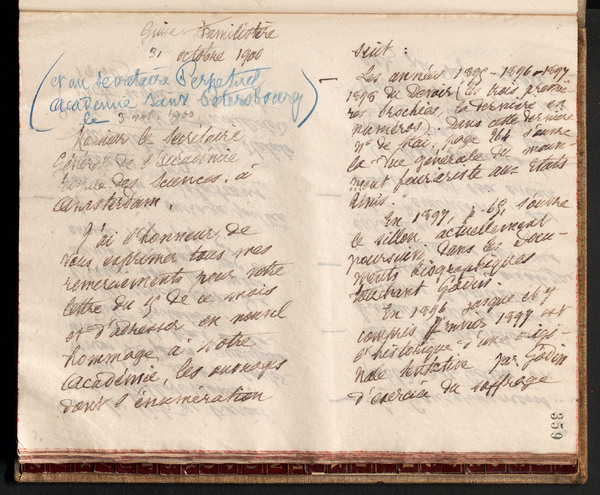 Guise Familistère
31 octobre 1900
(et au Secrétaire Perpétuel
Académie Saint Pétersbourg)
le 3 nov. 1900
Monsieur le Secrétaire
Général de l'Académie
des Sciences, à
Amsterdam.
J'ai l'honneur de
vous exprimer tous mes
remerciements pour votre
lettre du 15 de ce mois
et d'adresser en nouvel
hommage, à votre
Académie, les ouvrages
dont l'énumération
suit :
Les années 1895-1896-1897-
1898 du Devoir (les trois premiè-
res brochées, la dernière en
numéros). Dans cette dernière
n° de Mai, page 264 s'ouvre
la "Vue générale du mouve-
ment fouriériste aux Etats
Unis."
En 1897, p. 65, s'ouvre
le sillon actuellement
poursuivi dans les Docu-
ments biographiques
touchant Godin.
En 1896 jusque et y
compris février 1897 est
l'historique d'une origi-
nale tentative par Godin
d'exercice du suffrage
359